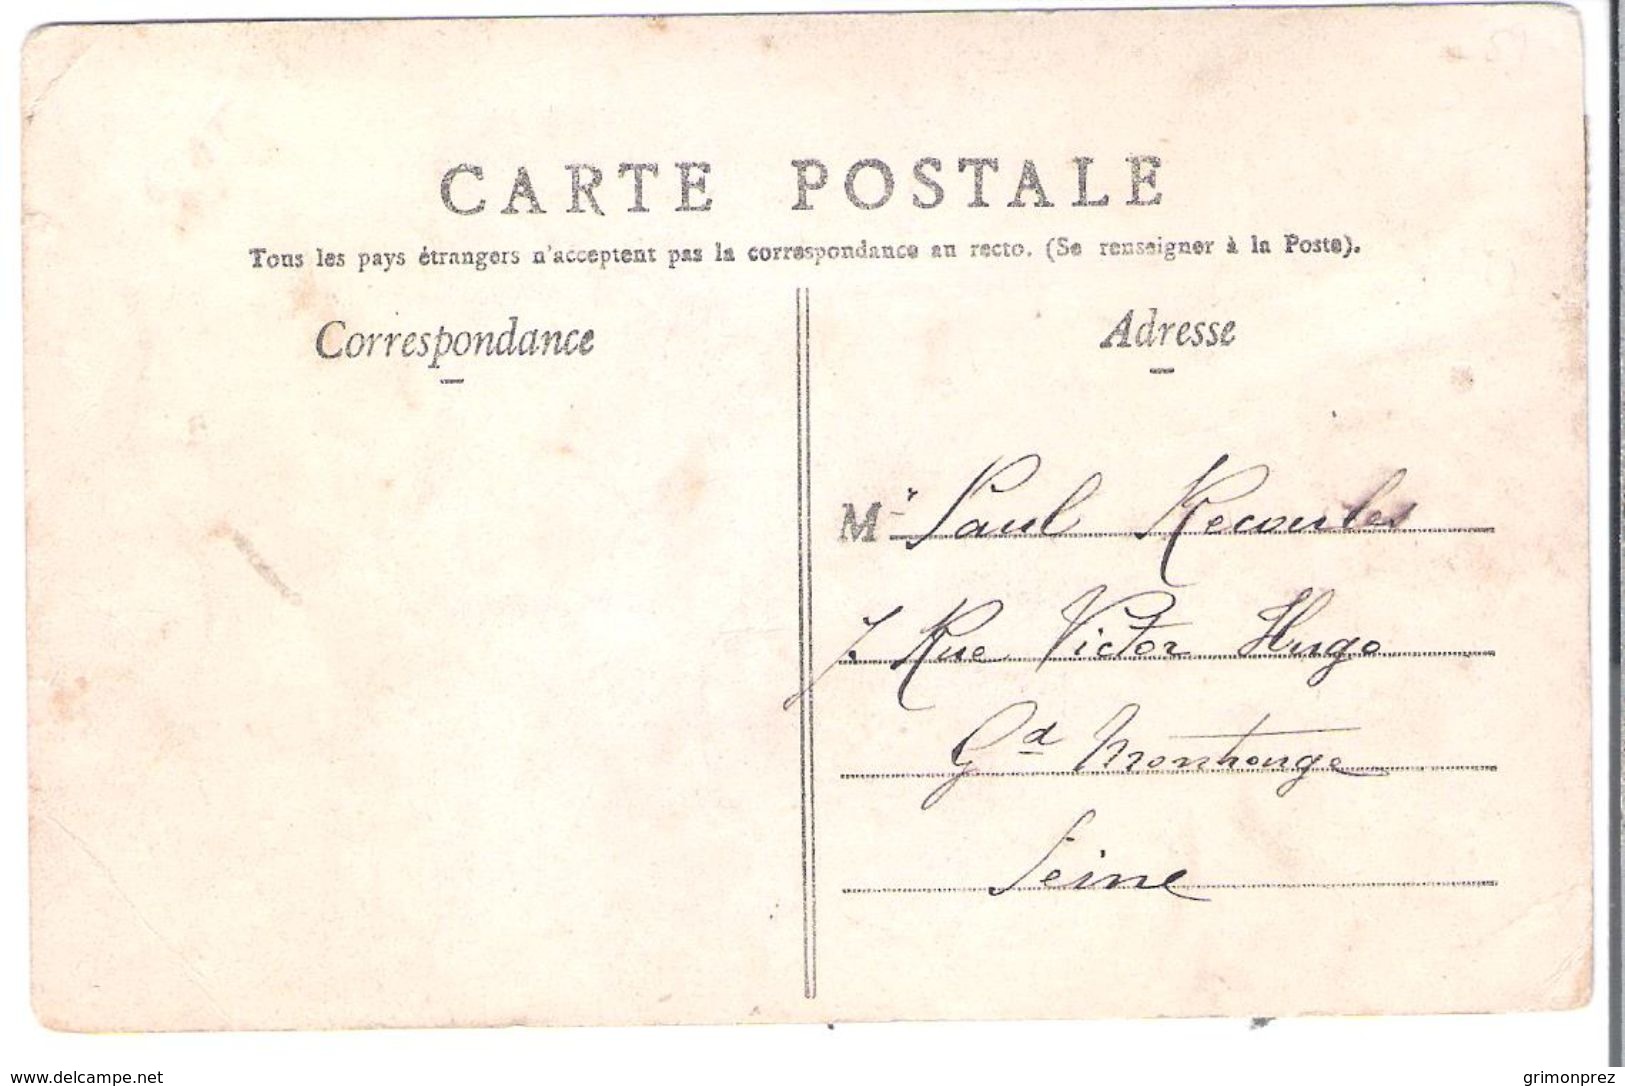 CARTE POSTALE
Tous les pays étrangers n'acceptent pas la correspondance au recto. (Se renseigner à la Poste).
Correspondance
Adresse
Mr Paul Recoules
7. Rue Victor Hugo
Gd Montrouge
Seine
www.delcampe.net
grimonprez